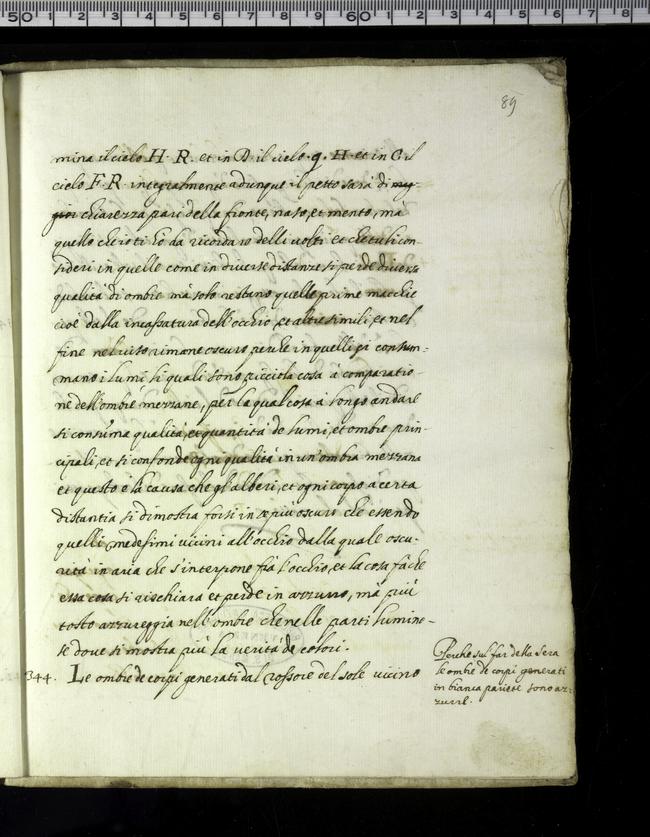 89
mina il cielo H. R. et in D il cielo. q. H. et in C. il
cielo F. R. integralmente adunque il petto sarà di mag-
gior chiarezza pari della fronte, naso, et mento, ma
quello che io ti hò da ricordare delli uolti et che tu li con-
sideri in quelle come in diuerse distanze si perde diuersa
qualità di ombre mà solo restano quelle prime macchie
cioè dalla incassatura dell'occhio, et altre simili, et nel
fine nel uiso rimane oscuro perche in quelli si consum=
mano i lumi li quali sono picciola cosa à comparatio-
ne dell'ombre mezzane, per la qual cosa à longo andare
si consuma qualità, et quantità de lumi, et ombre prin-
cipali, et si confonde ogni qualità in un'ombra mezzana
et questo è la causa che gl'alberi, et ogni corpo à certa
distantia si dimostra forsi in se più oscuro che essendo
quelli medesimi uicini all'occhio dalla quale oscu-
rità in aria che s'interpone frà l'occhio, et la cosa fà che
essa cosa si rischiara et perde in azzurro, mà più
tosto azzureggia nell'ombre che nelle parti lumino-
se doue si mostra più la uerità de colori.
344. Le ombre de corpi generati dal rossore del sole uicino
Perche sul far della sera
le ombre de corpi generati
in bianca pariete sono az-
zurre.